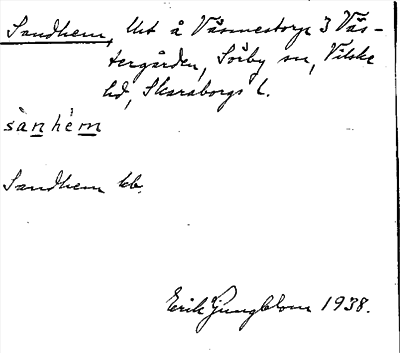 Sandhem, Urt å Väsmestorp 3 Väs-
tergården, Sörby sn, Vilske
hd, Skaraborgs l.
sànhèm
Sandhem kb.
Erik Ljungblom 1938.